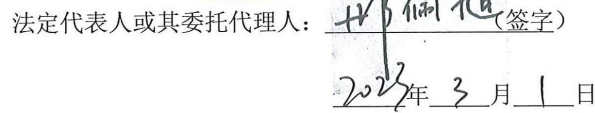 法定代表人或其委托代理人：(签字)
2023年3月1日